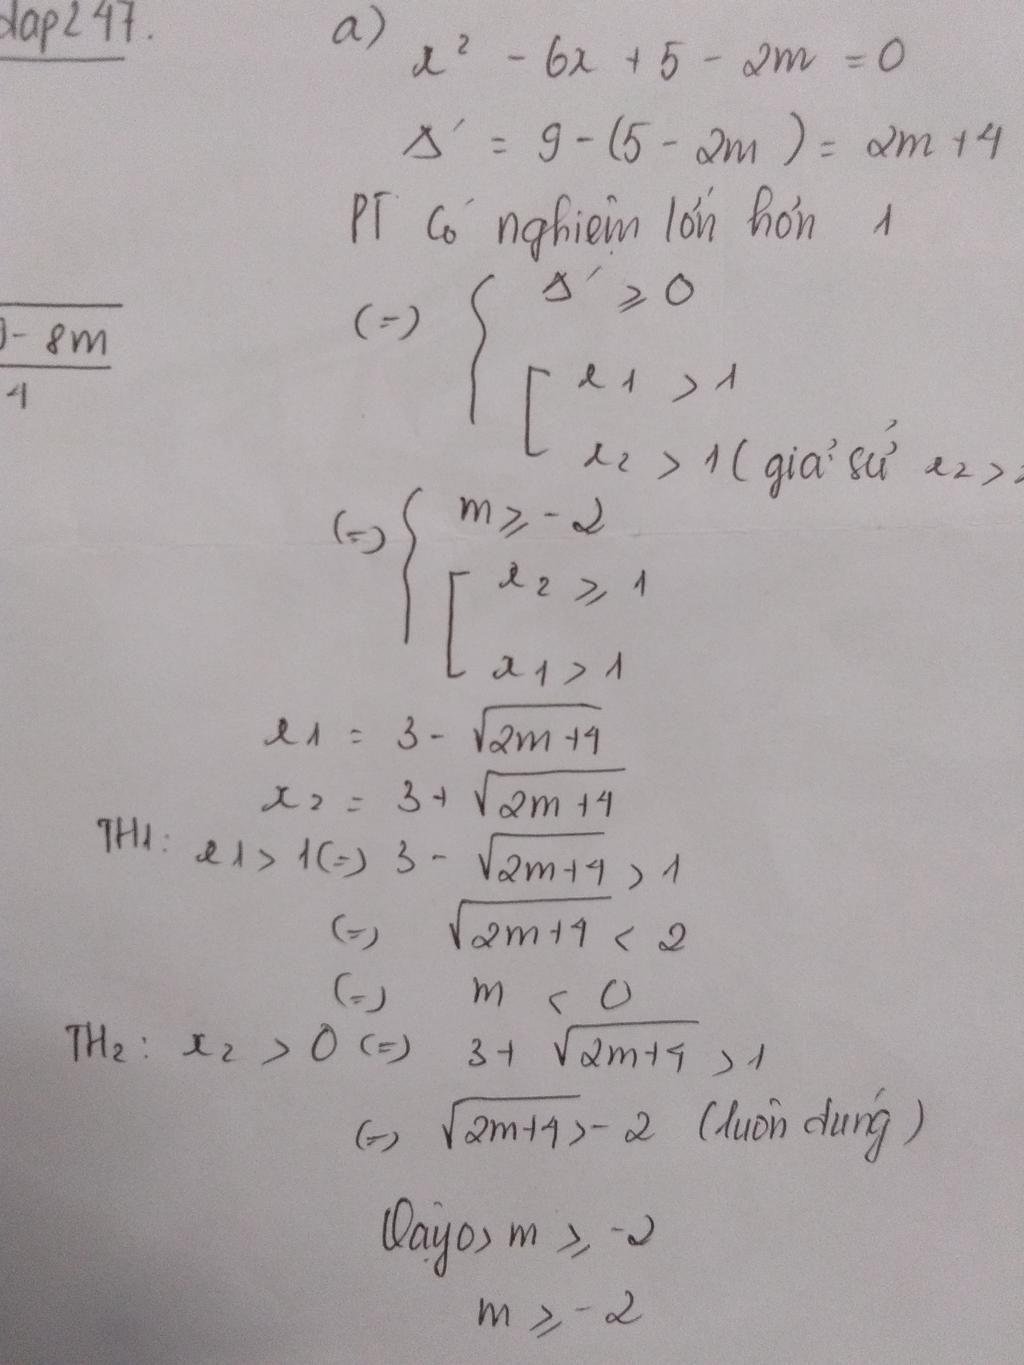 a)
x² - 6x + 5 - 2m = 0
Δ' = 9 - (5 - 2m) = 2m + 4
PT có nghiệm lớn hơn 1
(=) { Δ' ≥ 0
[ x1 > 1
x2 > 1 ( giả sử x2 >
(=) { m ≥ -2
[ x2 ≥ 1
x1 > 1
- 8m
4
x1 = 3 - √2m+4
x2 = 3 + √2m+4
TH1: x1 > 1 (=) 3 - √2m+4 > 1
(=) √2m+4 < 2
(=) m < 0
TH2: x2 > 0 (=) 3 + √2m+4 > 1
(=) √2m+4 > -2 (luôn đúng)
m ≥ -2
m ≥ -2